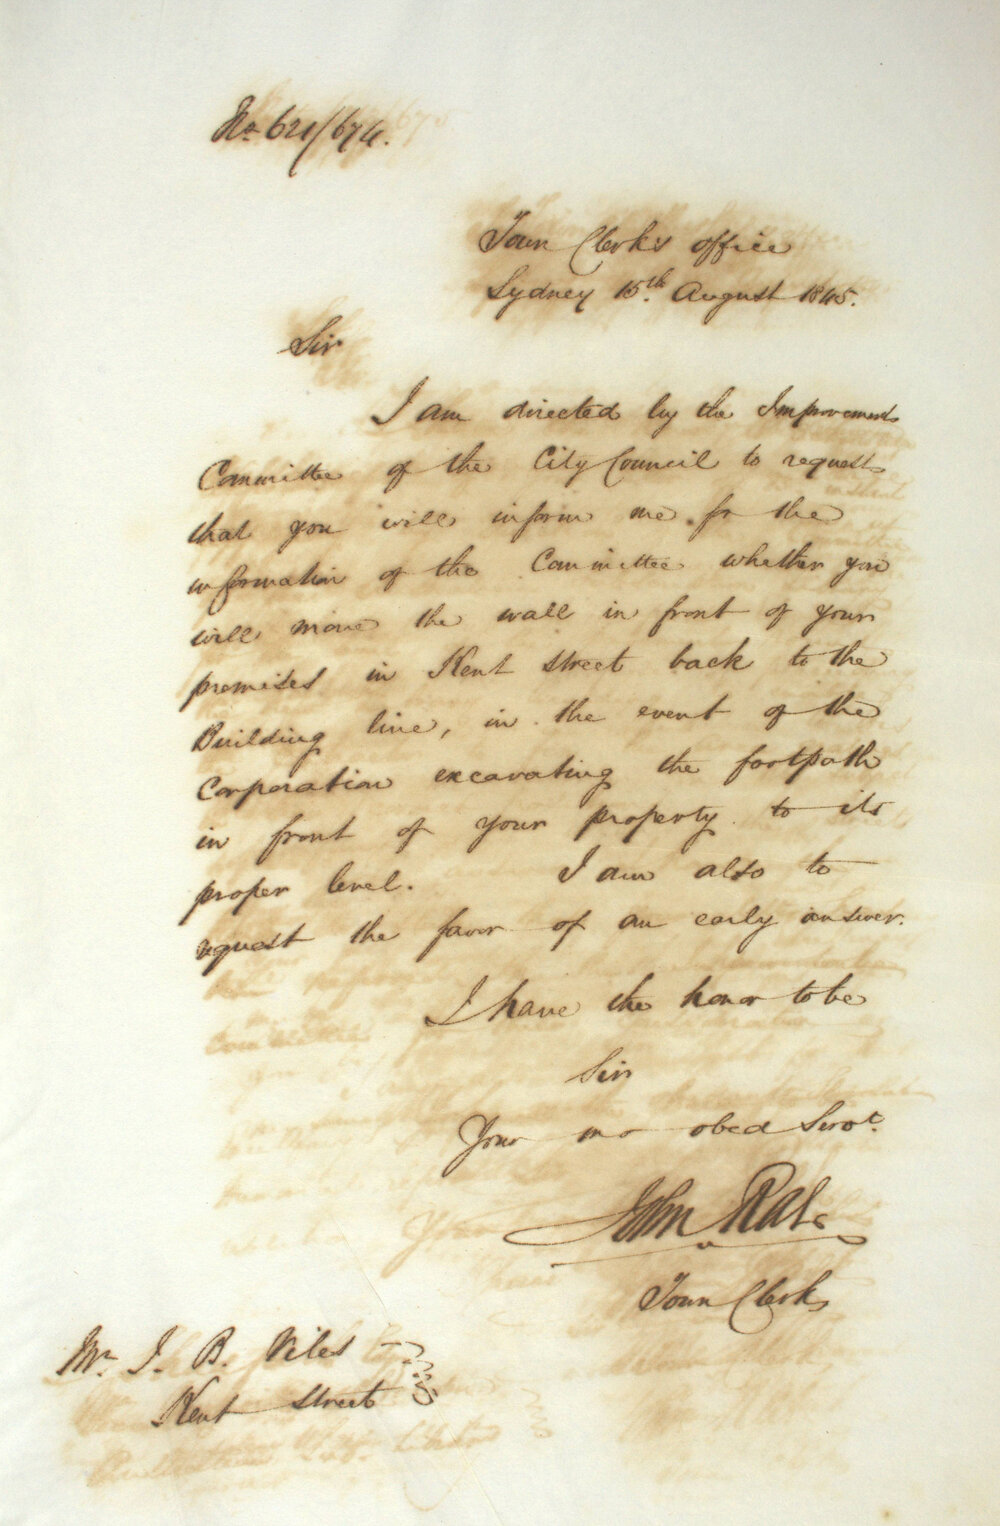 No. 621/674.
Town Clerk's office
Sydney 15th. August 1845.
Sir
I am directed by the Improvement
Committee of the City Council to request
that you will inform me for the
information of the Committee whether you
will move the wall in front of your
premises in Kent Street back to the
Building line, in the event of the
Corporation excavating the footpath
in front of your property to its
proper level. I am also to
request the favor of an early answer.
I have the honor to be
Sir
Your mo obed Servt.
John Rae
Town Clerk
Mr. J. B. Viles
Kent Street